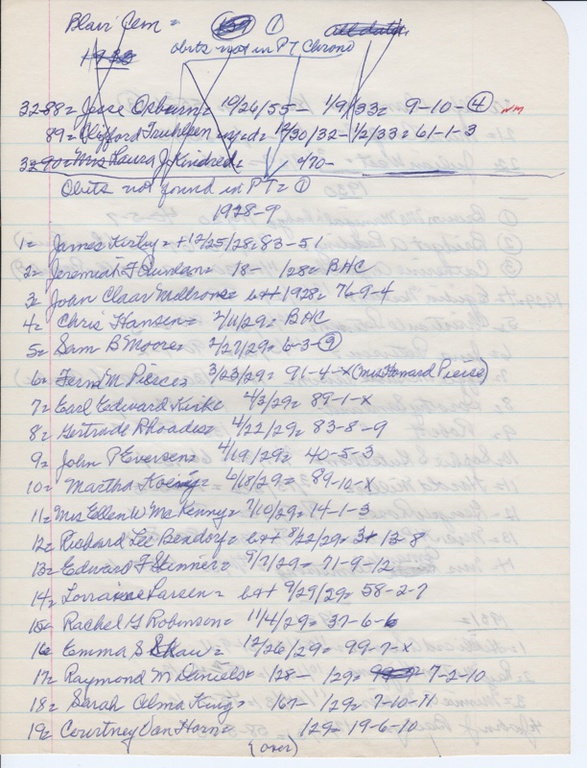 Blair Cem = 159 ① all data
1930 obits not in PT Chrono
32-88= Jesse Osburn= 10/26/55- 1/9/33= 9-10-④ nm
89= Clifford 12/30/32- 1/2/33= 61-1-3
32-90= Mrs Laura J Kindred= 1/70-
Obits not found in PT= ①
1928-9
1= James Kirby= +12/25/28= 83-51
2= Jeremiah F Quinlan= 18- /28= BHC
3= Joan Claar Melbrons= b++ 1928= 76-9-4
4= Chris Hansen= 2/11/29= BHC
5= Sam B Moore= 2/27/29= 6-3-⑨
6= Fern M Pierce= 3/23/29= 91-4-x (Mrs Howard Peirse)
7= Earl Edward Kirk= 4/3/29= 89-1-x
8= Gertrude Rhoades= 4/22/29= 83-8-9
9= John P Eversen= 4/19/29= 40-5-3
10= Martha Koenig= 6/18/29= 89-10-x
11= Mrs Ellen W McKenny= 7/10/29= 14-1-3
12= Richard Lee Bendorf= b++ 8/22/29= 3+ 13-8
13= Edward F Skinner= 9/7/29= 71-9-12
14= Lorraine Larsen= b++ 9/29/29= 58-2-7
15= Rachel G Robinson= 11/4/29= 37-6-6
16= Emma S Shaw= 12/26/29= 99-7-x
17= Raymond M Daniels= /28- /29= 7-2-10
18= Sarah Alma King= 167- /29= 7-10-11
19= Courtney Van Horn= /29= 19-6-10
(over)